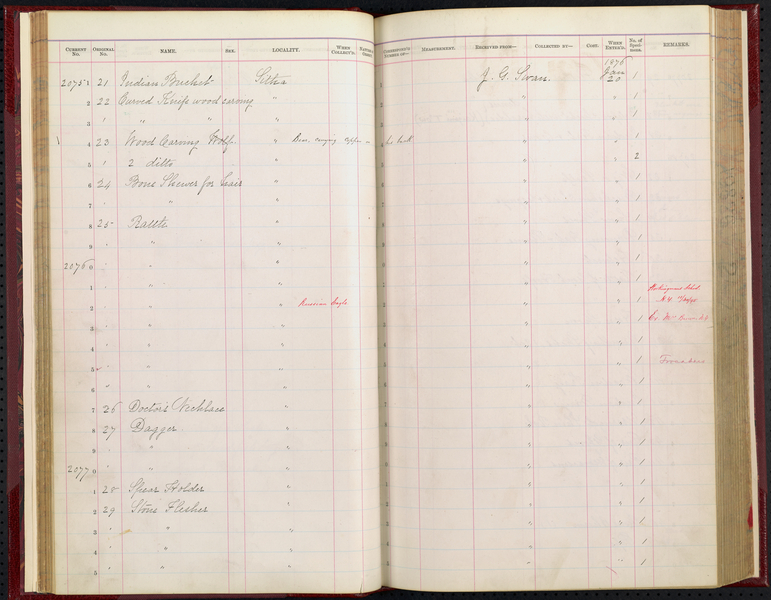 CURRENT No. ORIGINAL No. NAME. SEX. LOCALITY. WHEN COLLECT'D. MEASUREMENT. RECEIVED FROM— COLLECTED BY— COST. WHEN ENTER'D. No. of Speci-mens. REMARKS.
1876
20751 21 Indian Bucket Sitka J. G. Swan. Jan 20 1
2 22 Curved Knife wood carving " " " 1
3 " " " " " 1
4 23 Wood Carving Wolf " Bear, carrying his back " " 1
5 " 2 ditto " " " 2
6 24 Bone for hair " " " 1
7 " " " " " 1
8 25 Rattle " " " 1
9 " " " " " 1
20760 " " " " " 1
1 " " " " " 1
2 " " " Russian Eagle " " 1
3 " " " " " 1
4 " " " " " 1
5 " " " " " 1
6 " " " " " 1
7 26 Doctor's Necklace " " " 1
8 27 Dagger " " " 1
9 " " " " " 1
20770 " " " " " 1
1 28 Spear Holder " " " 1
2 29 Stone Flesher " " " 1
3 " " " " " 1
4 " " " " " 1
5 " " " " " 1